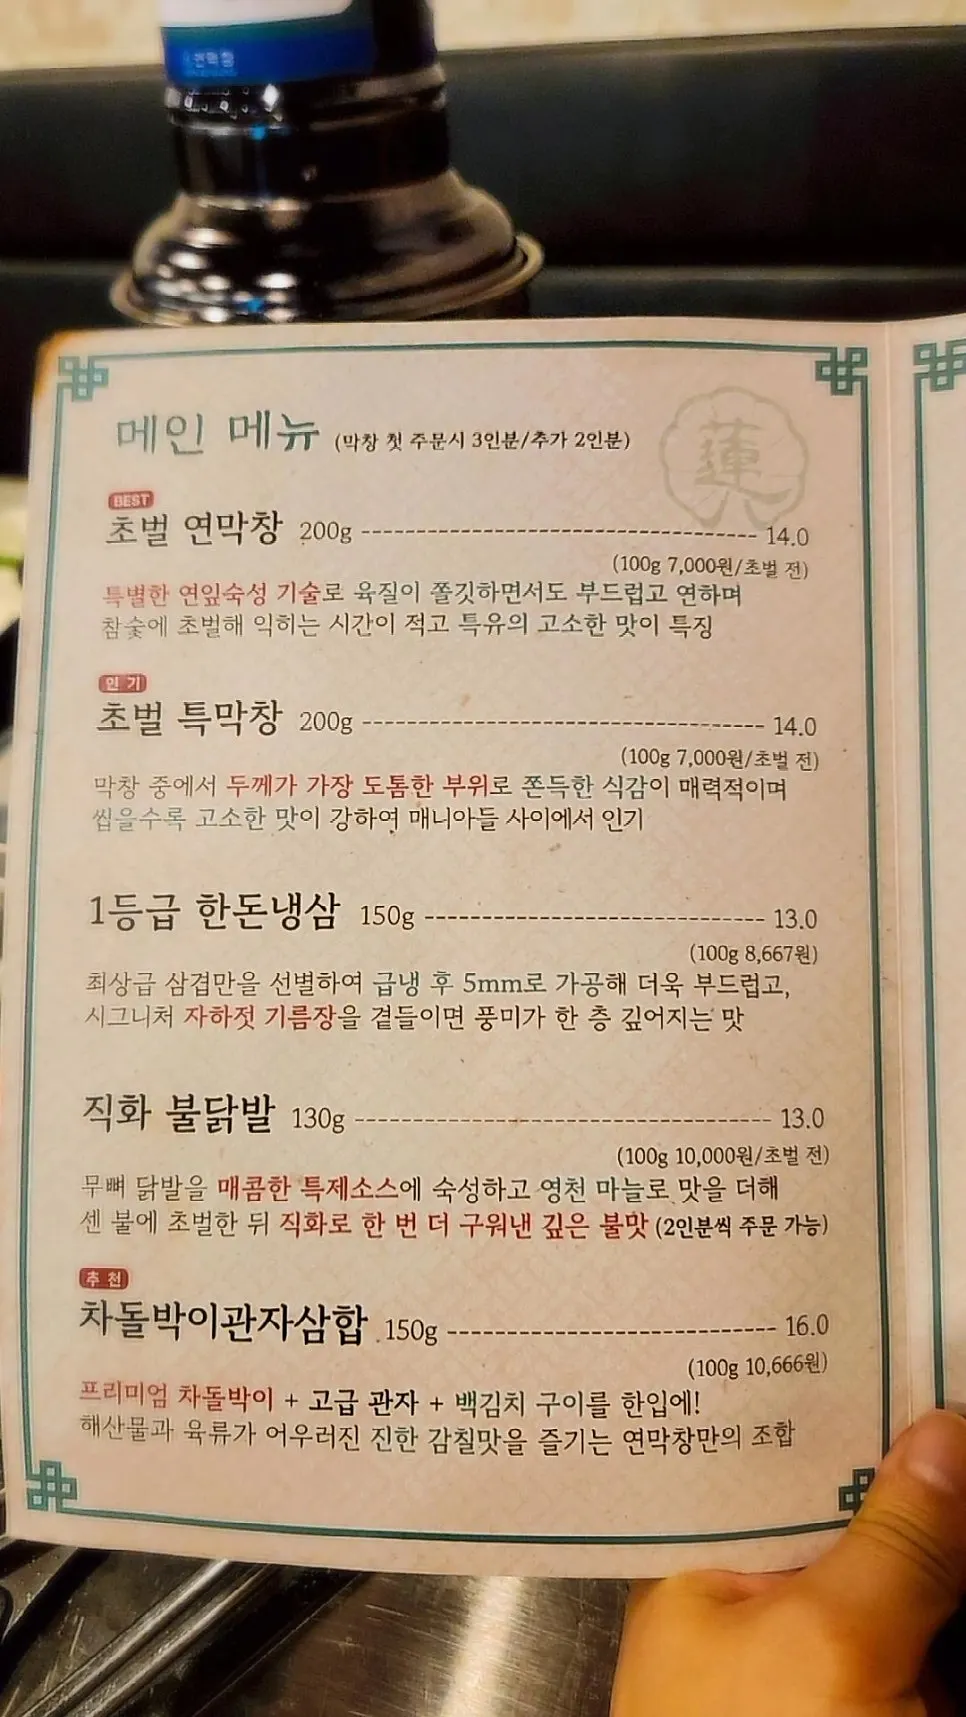 연막창
메인 메뉴 (막창 첫 주문시 3인분/추가 2인분)
蓮
BEST
초벌 연막창 200g ---------- 14.0
(100g 7,000원/초벌 전)
특별한 연잎숙성 기술로 육질이 쫄깃하면서도 부드럽고 연하며
참숯에 초벌해 익히는 시간이 적고 특유의 고소한 맛이 특징
인기
초벌 특막창 200g ---------- 14.0
(100g 7,000원/초벌 전)
막창 중에서 두께가 가장 도톰한 부위로 쫀득한 식감이 매력적이며
씹을수록 고소한 맛이 강하여 매니아들 사이에서 인기
1등급 한돈냉삼 150g ---------- 13.0
(100g 8,667원)
최상급 삼겹만을 선별하여 급냉 후 5mm로 가공해 더욱 부드럽고,
시그니처 자하젓 기름장을 곁들이면 풍미가 한 층 깊어지는 맛
직화 불닭발 130g ---------- 13.0
(100g 10,000원/초벌 전)
무뼈 닭발을 매콤한 특제소스에 숙성하고 영천 마늘로 맛을 더해
센 불에 초벌한 뒤 직화로 한 번 더 구워낸 깊은 불맛 (2인분씩 주문 가능)
추천
차돌박이관자삼합 150g ---------- 16.0
(100g 10,666원)
프리미엄 차돌박이 + 고급 관자 + 백김치 구이를 한입에!
해산물과 육류가 어우러진 진한 감칠맛을 즐기는 연막창만의 조합